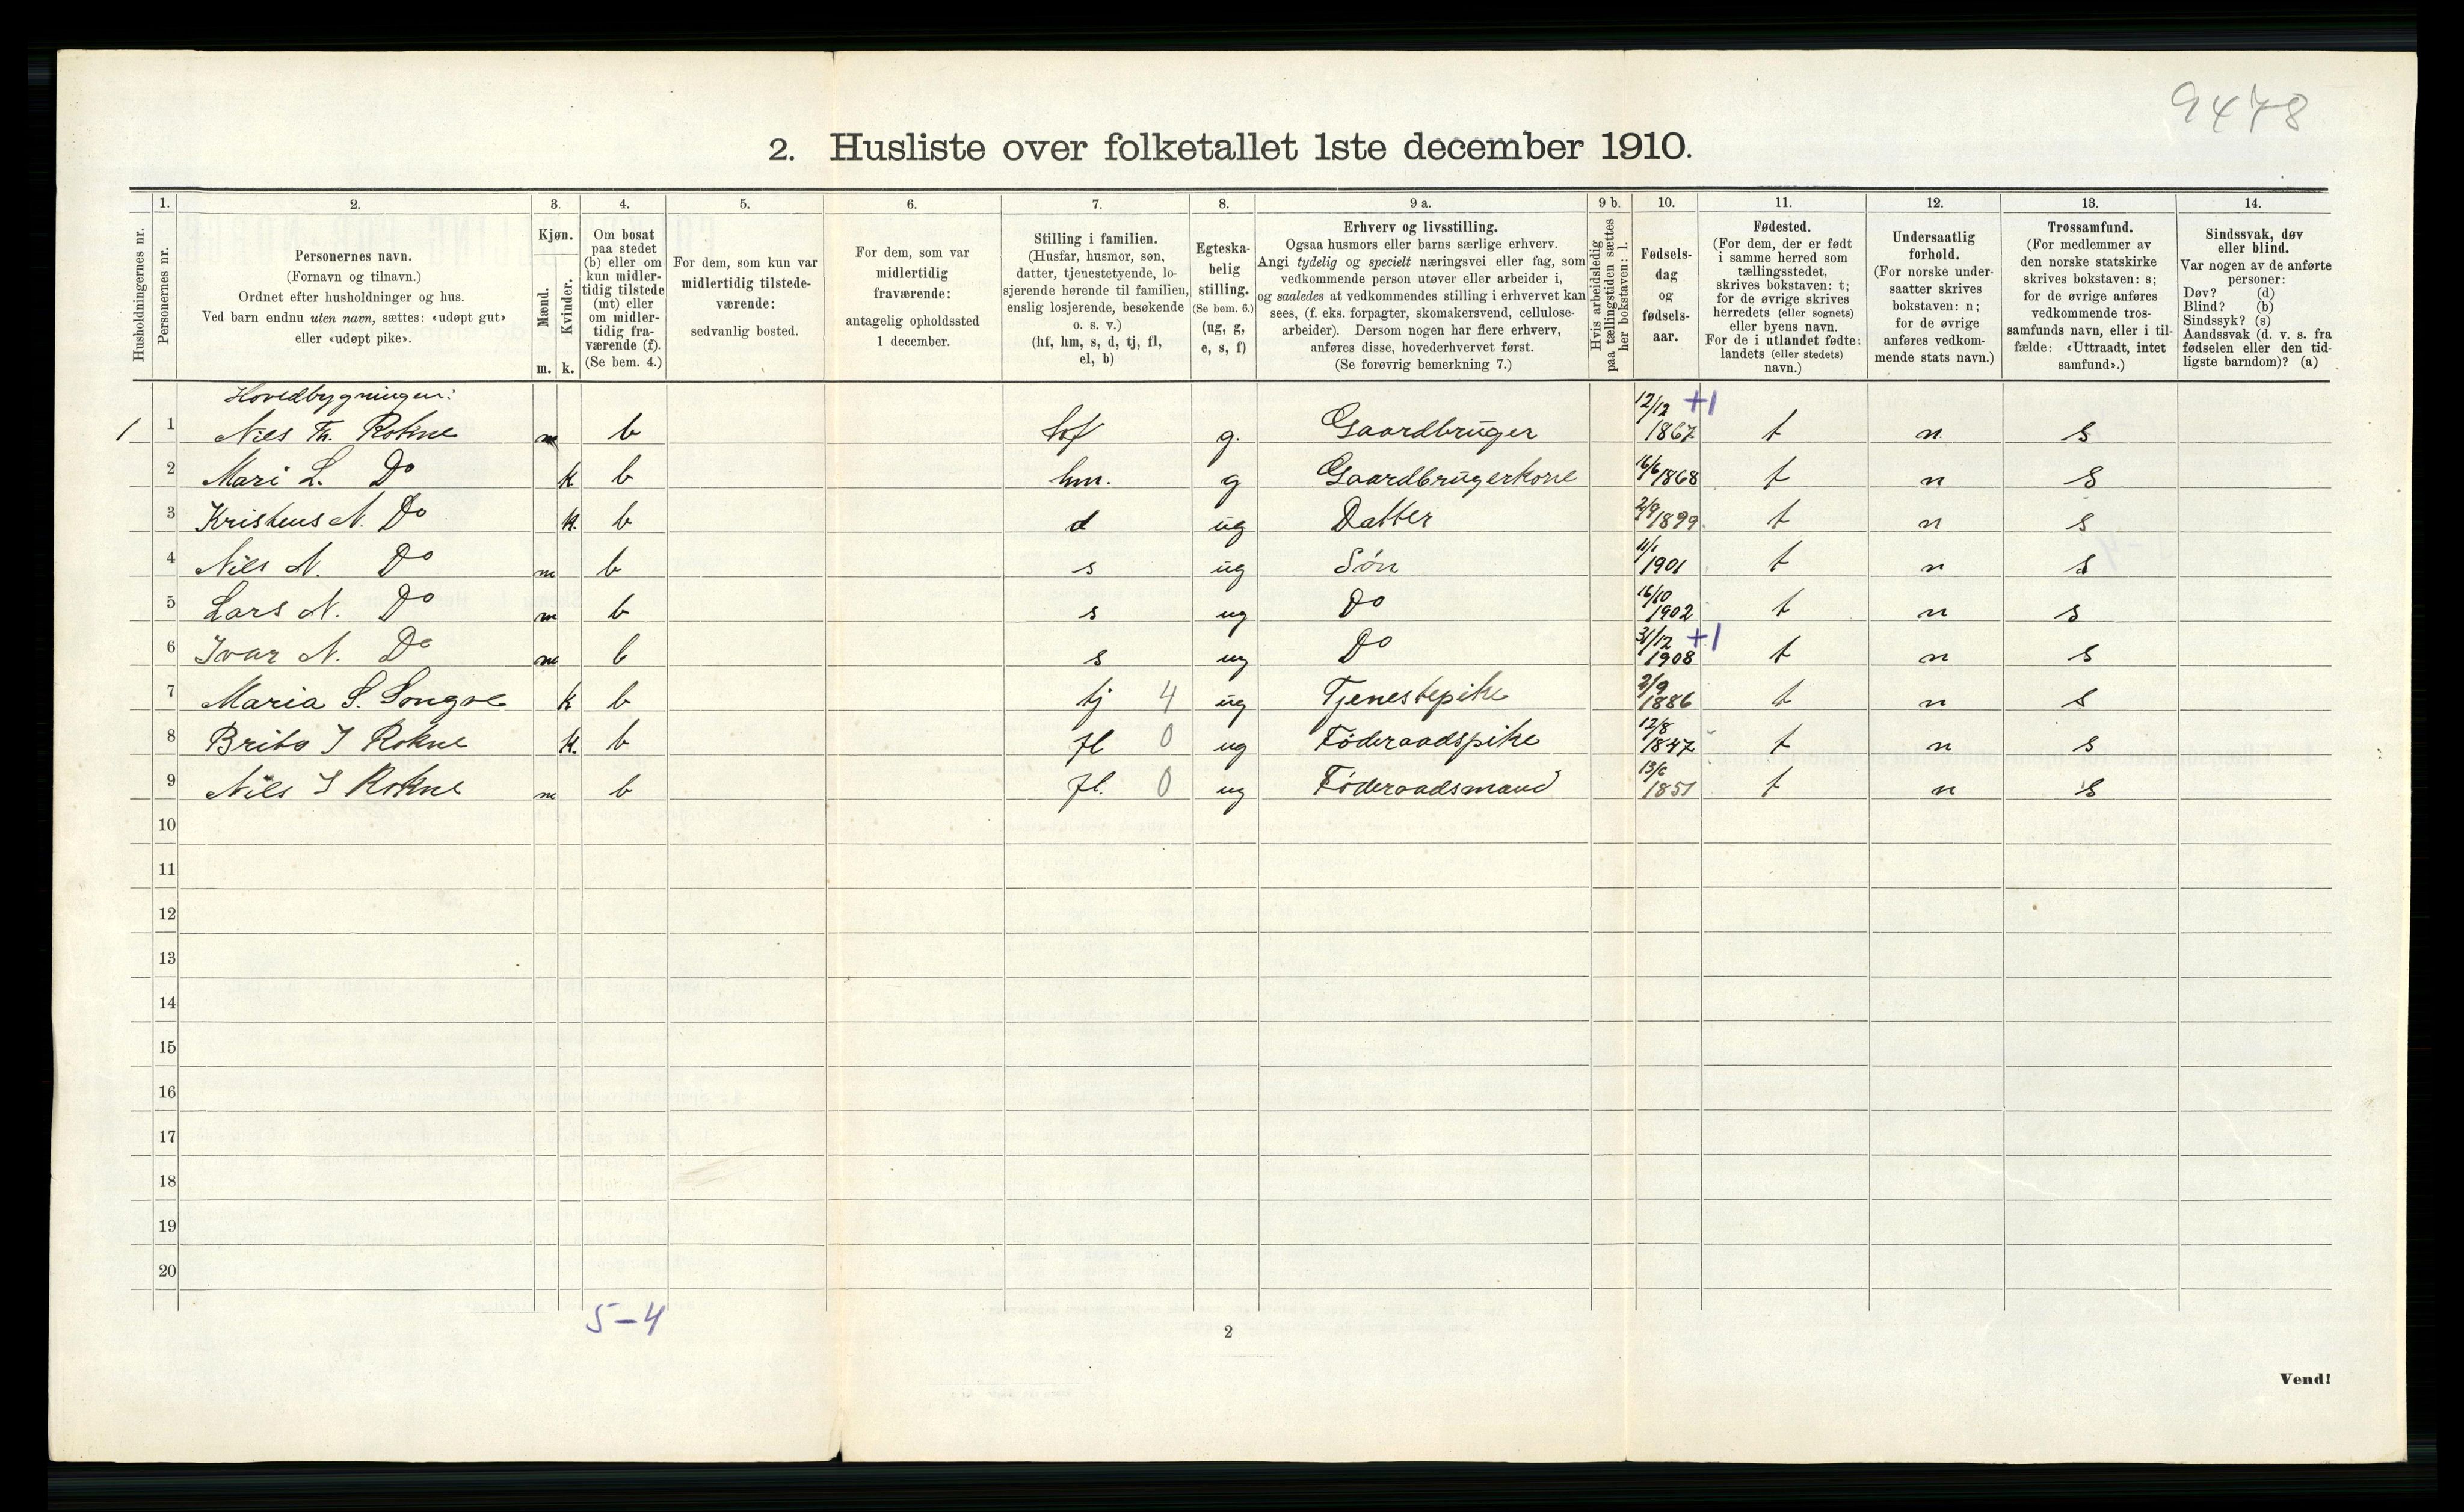 9478
2. Husliste over folketallet 1ste december 1910.
Husholdningernes nr.
1.
Personernes nr.
2.
Personernes navn.
(Fornavn og tilnavn.)
Ordnet efter husholdninger og hus.
Ved barn endnu uten navn, sættes: «udøpt gut»
eller «udøpt pike».
3.
Kjøn.
Mænd.
m.
Kvinder.
k.
4.
Om bosat
paa stedet
(b) eller om
kun midler-
tidig tilstede
(mt) eller
om midler-
tidig fra-
værende (f).
(Se bem. 4.)
5.
For dem, som kun var
midlertidig tilstede-
værende:
sedvanlig bosted.
6.
For dem, som var
midlertidig
fraværende:
antagelig opholdssted
1 december.
7.
Stilling i familien.
(Husfar, husmor, søn,
datter, tjenestetyende, lo-
sjerende hørende til familien,
enslig losjerende, besøkende
o. s. v.)
(hf, hm, s, d, tj, fl,
el, b)
8.
Egteska-
belig
stilling.
(Se bem. 6.)
(ug, g,
e, s, f)
9 a.
Erhverv og livsstilling.
Ogsaa husmors eller barns særlige erhverv.
Angi tydelig og specielt næringsvei eller fag, som
vedkommende person utøver eller arbeider i,
og saaledes at vedkommendes stilling i erhvervet kan
sees, (f. eks. forpagter, skomakersvend, cellulose-
arbeider). Dersom nogen har flere erhverv,
anføres disse, hovederhvervet først.
(Se forøvrig bemerkning 7.)
9 b.
Hvis arbeidsledig
paa tællingstiden sættes
her bokstaven: l.
10.
Fødsels-
dag
og
fødsels-
aar.
11.
Fødested.
(For dem, der er født
i samme herred som
tællingsstedet,
skrives bokstaven: t;
for de øvrige skrives
herredets (eller sognets)
eller byens navn.
For de i utlandet fødte:
landets (eller stedets)
navn.)
12.
Undersaatlig
forhold.
(For norske under-
saatter skrives
bokstaven: n;
for de øvrige
anføres vedkom-
mende stats navn.)
13.
Trossamfund.
(For medlemmer av
den norske statskirke
skrives bokstaven: s;
for de øvrige anføres
vedkommende tros-
samfunds navn, eller i til-
fælde: «Uttraadt, intet
samfund».)
14.
Sindssvak, døv
eller blind.
Var nogen av de anførte
personer:
Døv? (d)
Blind? (b)
Sindssyk? (s)
Aandssvak (d. v. s. fra
fødselen eller den tid-
ligste barndom)? (a)
Hovedbygningen:
1 1 Nils Th. Rokne m b hf g. Gaardbruger 12/12 1867 +1 t n s
2 Mari L. Do k b hm. g Gaardbrugerkone 16/6 1868 t n s
3 Kristens N. Do k. b d ug Datter 2/9 1899 t n s
4 Nils N. Do m b s ug Søn 11/1 1901 t n s
5 Lars N. Do m b s ug Do 16/10 1902 t n s
6 Ivar N. Do m b s ug Do 31/12 1908 +1 t n s
7 Maria S. Songve k b tj 4 ug Tjenestepike 2/9 1886 t n s
8 Brita I Rokne k. b fl 0 ug Føderaadspike 12/8 1847 t n s
9 Nils I Rokne m b fl. 0 ug Føderaadsmand 13/6 1851 t n s
10
11
12
13
14
15
16
17
18
19
20
5-4
2
Vend!